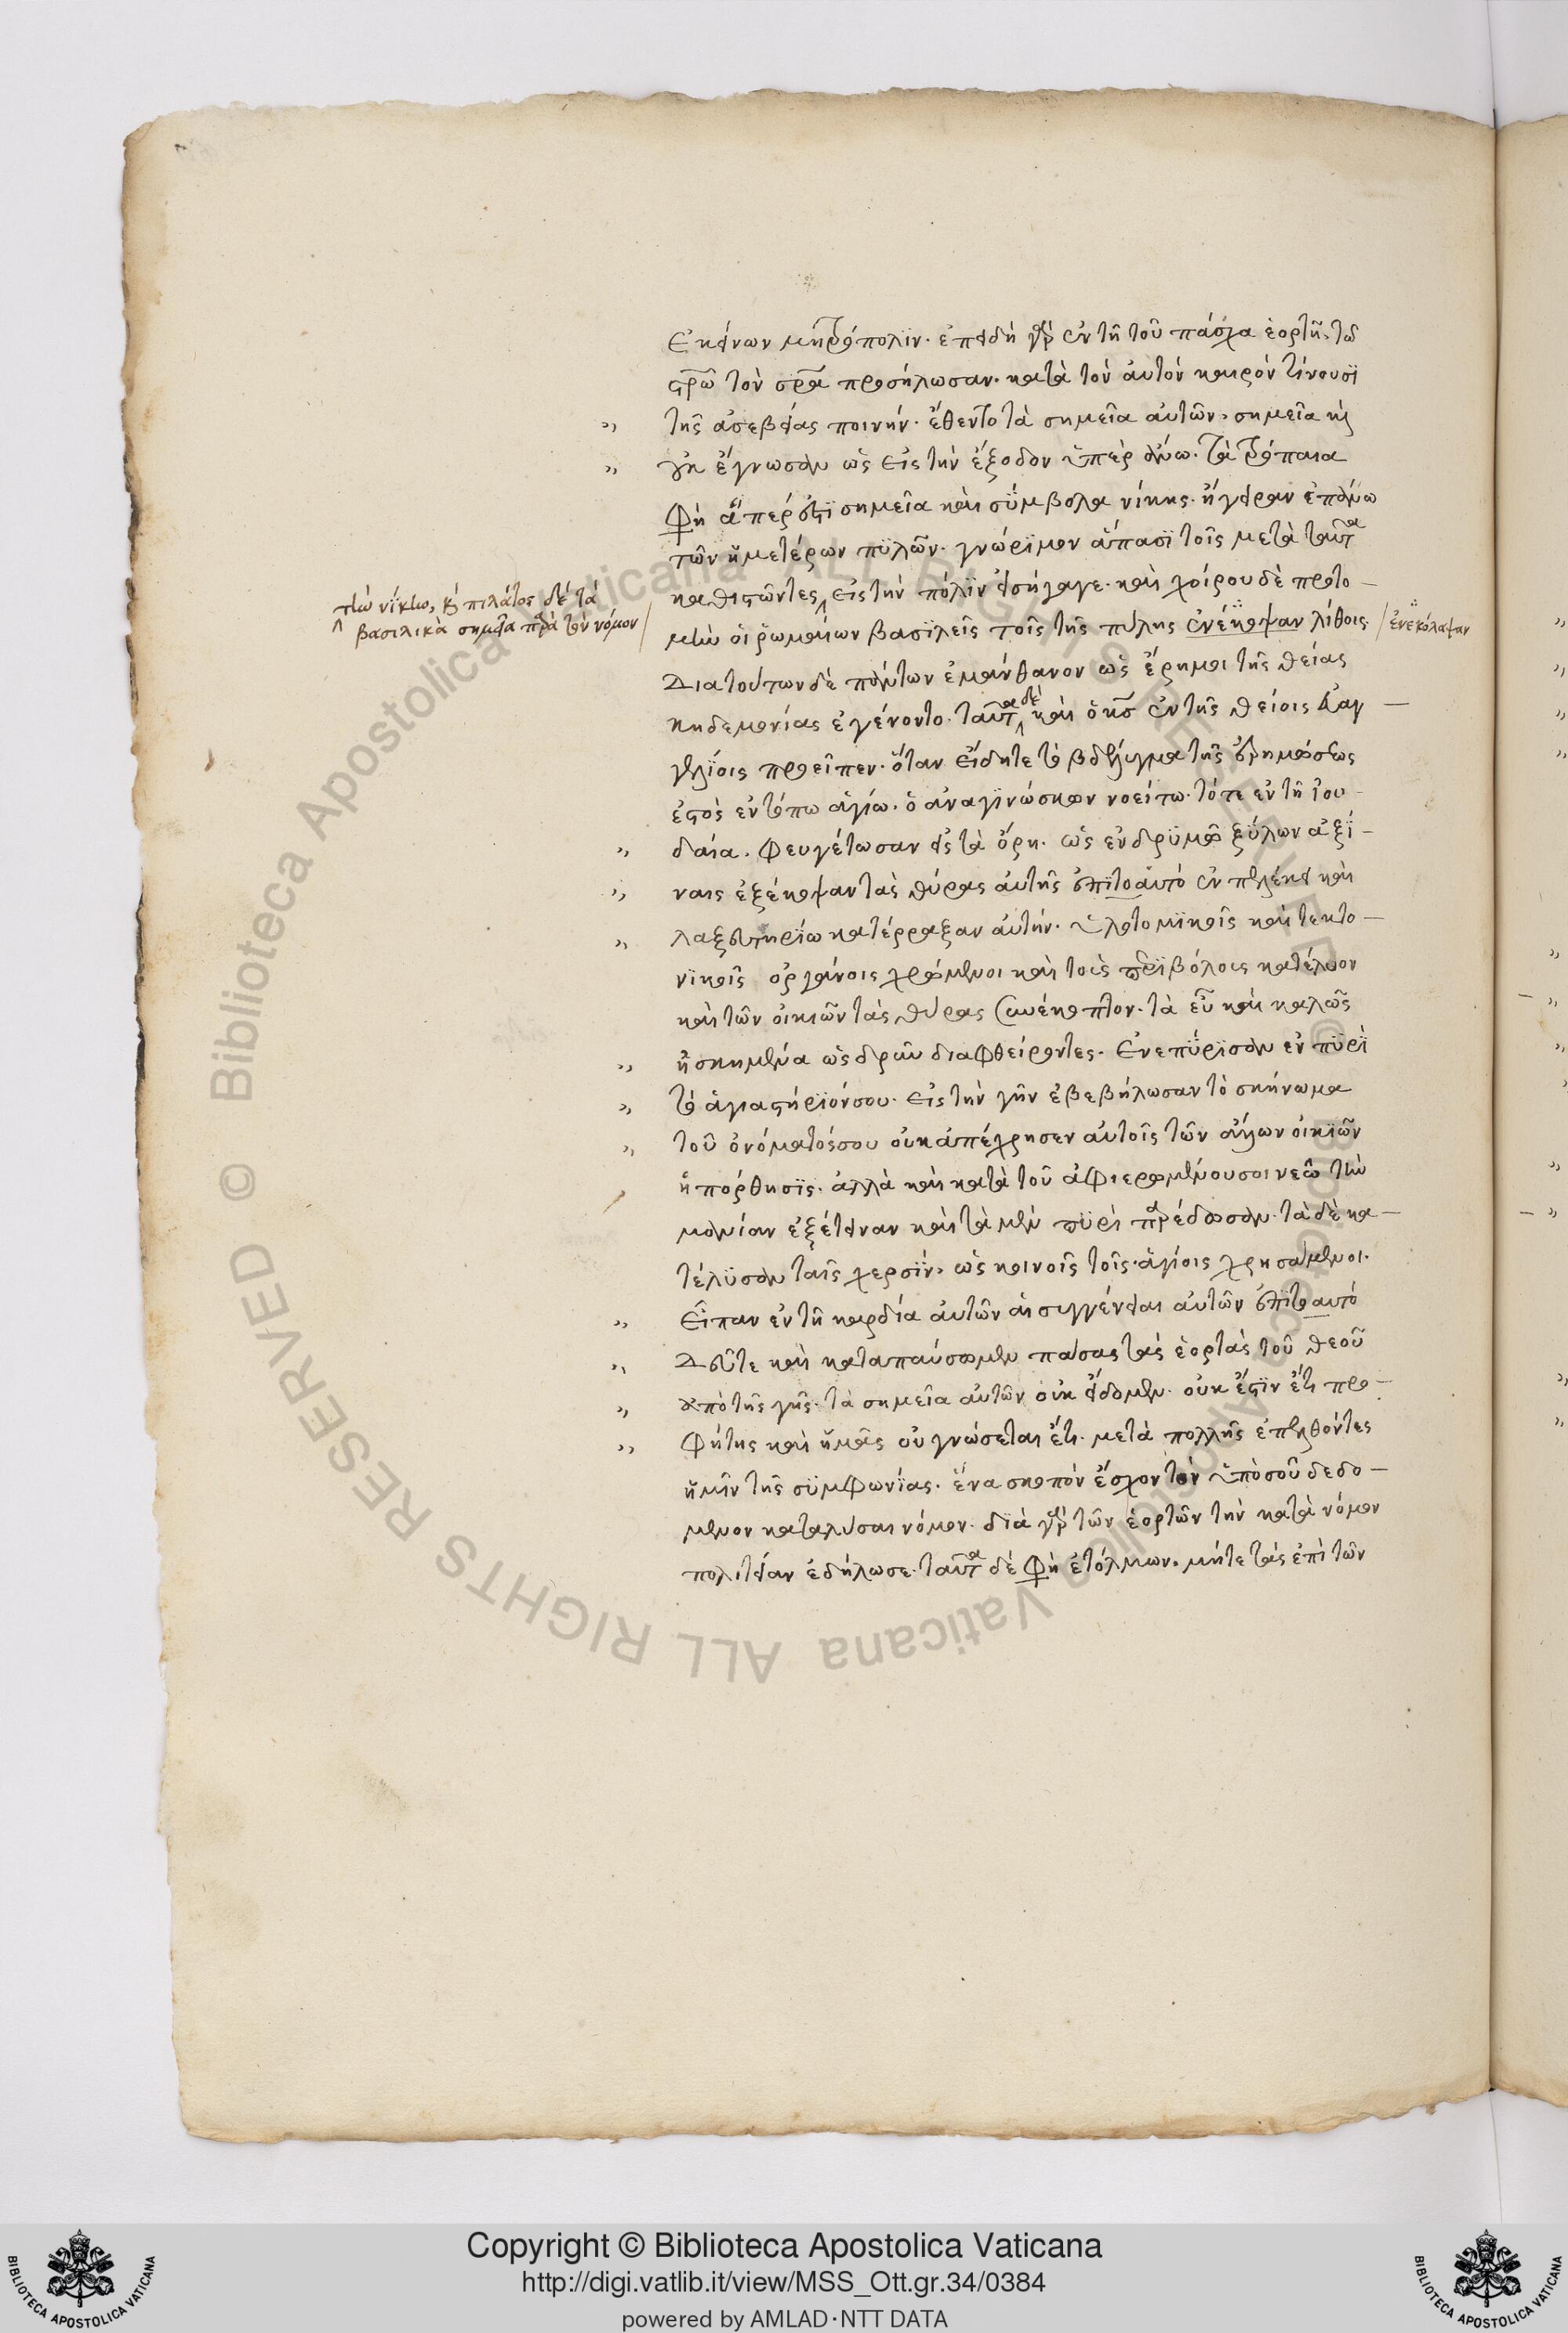 ἐκείνων μητρόπολιν. ἐπειδὴ γὰρ ἐν τῆ τοῦ πάσχα ἑορτῆ, τῶ
στρῶ τὸν σρα προσήλωσαν. κατὰ τὸν αὐτὸν καιρὸν τίνουσι
τῆς ἀσεβείας ποινήν. ἔθεντο τὰ σημεῖα αὐτῶν, σημεῖα κὶ
οὐκ ἔγνωσαν ὡς εἰς τὴν ἔξοδον ὑπὲρ ἄνω. τὰ τρόπαια
φη ἅπερ ἐστὶ σημεῖα καὶ σύμβολα νίκης. ἤγειραν ἐπάνω
τῶν ἡμετέρων πυλῶν. γνώριμον ἅπασι τοῖς μετὰ ταῦτα
καθιστῶντες εἰς τὴν πόλιν εἰσήγαγε. καὶ χοίρου δὲ προτο-
τὴν νίκην, κ πιλάτος δὲ τὰ
βασιλικὰ σημεῖα παρὰ τὸν νόμον
μὴν οἱ ῥωμαίων βασιλεῖς τοῖς τῆς πύλης ἐνέκοψαν λίθοις.
ἐνεκόλαψαν
Διατούτων δὲ πάντων ἐμάνθανον ὡς ἔρημοι τῆς θείας
κηδεμονίας ἐγένοντο. ταῦτα δὲ καὶ ὁ κσ ἐν τῆς θείοις εὐαγ-
γελίοις προεῖπεν. ὅταν εἴδητε τὸ βδέλυγμα τῆς ἐρημώσεως
ἑστὸς ἐν τόπω ἁγίω. ὁ ἀναγινώσκων νοείτω. τότε ἐν τῆ ἰου-
δαία. φευγέτωσαν εἰς τὰ ὄρη. ὡς ἐν δρυμῶ ξύλων ἀξί-
ναις ἐξέκοψαν τὰς θύρας αὐτῆς ἐπιτοαυτό ἐν πελέκει καὶ
λαξευτηρίω κατέρραξαν αὐτήν. ὑλοτομικοῖς καὶ τεκτο-
νικοῖς ὀργάνοις χρώμενοι καὶ τοὺς περιβόλους κατέλυον
καὶ τῶν οἰκιῶν τὰς θύρας συνέκοπτον. τὰ εὖ καὶ καλῶς
ἠσκημένα ὡς δρῦν διαφθείροντες. ἐνεπύρισαν ἐν πυρὶ
τὸ ἁγιαστήριόν σου. εἰς τὴν γῆν ἐβεβήλωσαν τὸ σκήνωμα
τοῦ ὀνόματόςσου οὐκ ἀπέχρησεν αὐτοῖς τῶν ἄλλων οἰκιῶν
ἡ πόρθησις. ἀλλὰ καὶ κατὰ τοῦ ἀφιερωμένου σοι νεῶ τὴν
μανίαν ἐξέτειναν καὶ τὰ μὲν πυρὶ παρέδοσαν. τὰ δὲ κα-
τέλυσαν ταῖς χερσίν. ὡς κοινοῖς τοῖς ἁγίοις χρησάμενοι.
Εἶπαν ἐν τῆ καρδία αὐτῶν αἱ συγγένειαι αὐτῶν ἐπιτοαυτό
Δεῦτε καὶ καταπαύσωμεν πάσας τὰς ἑορτὰς τοῦ θεοῦ
ἀπὸ τῆς γῆς. τὰ σημεῖα αὐτῶν οὐκ εἴδομεν. οὐκ ἔστιν ἔτι προ-
φήτης καὶ ἡμᾶς οὐ γνώσεται ἔτι. μετὰ πολλῆς ἐπελθόντες
ἡμῖν τῆς συμφωνίας. ἕνα σκοπὸν ἔσχον τὸν ὑπὸ σοῦ δεδο-
μένον καταλῦσαι νόμον. διὰ γὰρ τῶν ἑορτῶν τὴν κατὰ νόμον
πολιτείαν ἐδήλωσε. ταῦτα δὲ φη ἐτόλμων. μήτε τὰς ἐπὶ τῶν
Copyright © Biblioteca Apostolica Vaticana
http://digi.vatlib.it/view/MSS_Ott.gr.34/0384
powered by AMLAD·NTT DATA
BIBLIOTECA APOSTOLICA VATICANA
BIBLIOTECA APOSTOLICA VATICANA
© Biblioteca Apostolica Vaticana ALL RIGHTS RESERVED
© Biblioteca Apostolica Vaticana ALL RIGHTS RESERVED